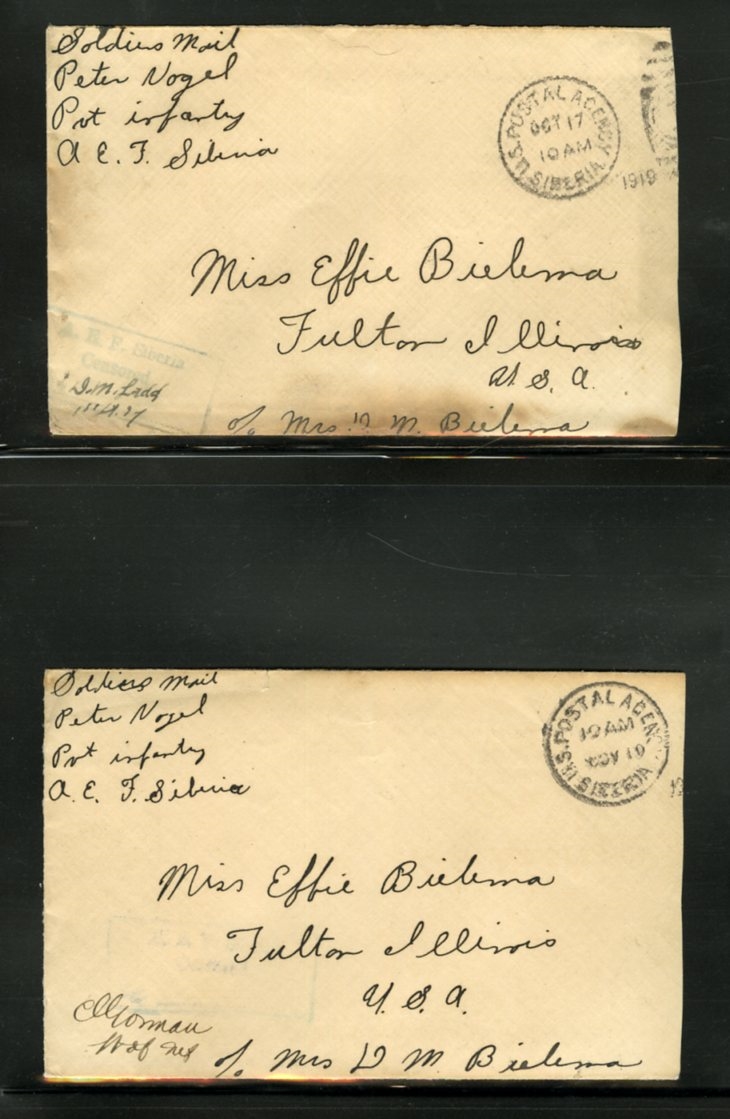 Soldiers Mail
Peter Vogel
Pvt infantry
A E. F. Siberia
U.S. POSTAL AGENCY
OCT 17
10 AM
SIBERIA
1919
Miss Effie Bielema
Fulton Illinois
U. S. A.
A. E. F. Siberia
Censored
D.M. Ladd
1st Lt. 27
c/o Mrs. D M. Bielema
Soldiers Mail
Peter Vogel
Pvt infantry
A. E. F. Siberia
U.S. POSTAL AGENCY
10 AM
NOV 10
SIBERIA
Miss Effie Bielema
Fulton Illinois
U. S. A.
Gorman
c/o Mrs D M. Bielema